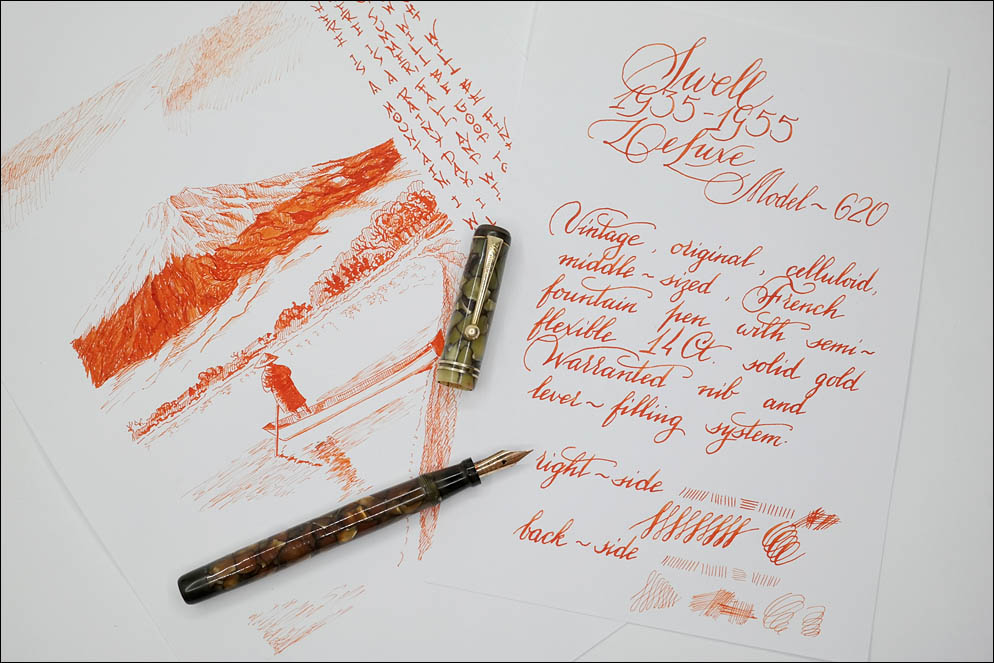 Swell
1935-1955
DeLuxe
Model~620
Vintage, original, celluloid,
middle~sized, French
fountain pen with semi~
flexible 14Ct. solid gold
Warranted nib and
lever~filling system.
right~side
back~side
HERE IS A MOUNTAIN